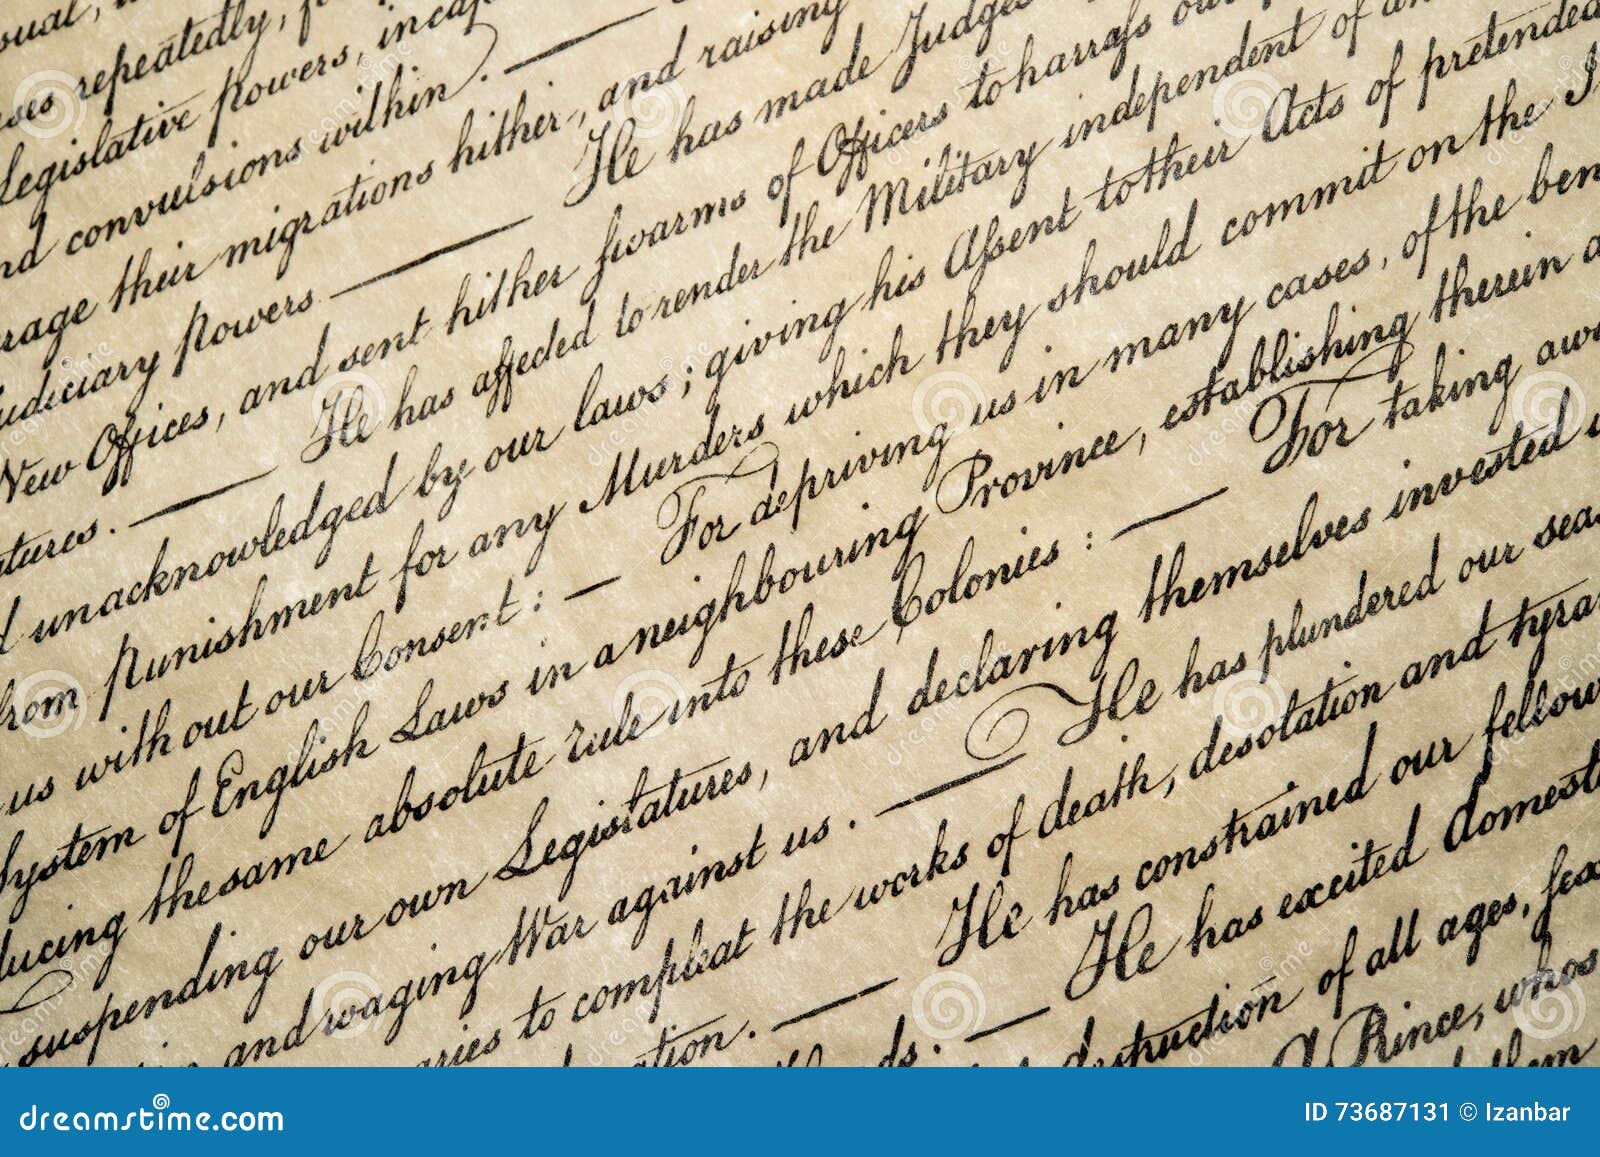 sual,
ses repeatedly, f
Legislative Powers, incap
nd convulsions within. —
rage their migrations hither, and raising
udiciary Powers. — He has made Judges
New Offices, and sent hither swarms of Officers to harrass our
tures. — He has affected to render the Military independent of an
d unacknowledged by our laws; giving his Assent to their Acts of pretended
from Punishment for any Murders which they should commit on the I
us without our Consent: — For depriving us in many cases, of the ben
System of English Laws in a neighbouring Province, establishing therein a
ducing the same absolute rule into these Colonies: — For taking awa
suspending our own Legislatures, and declaring themselves invested
and waging War against us. — He has plundered our seas
aries to compleat the works of death, desolation and tyra
ation. — He has constrained our fellow
ds. — He has excited domest
destruction of all ages, sex
A Prince, whos
them
dreamstime
ID 73687131 © Izanbar